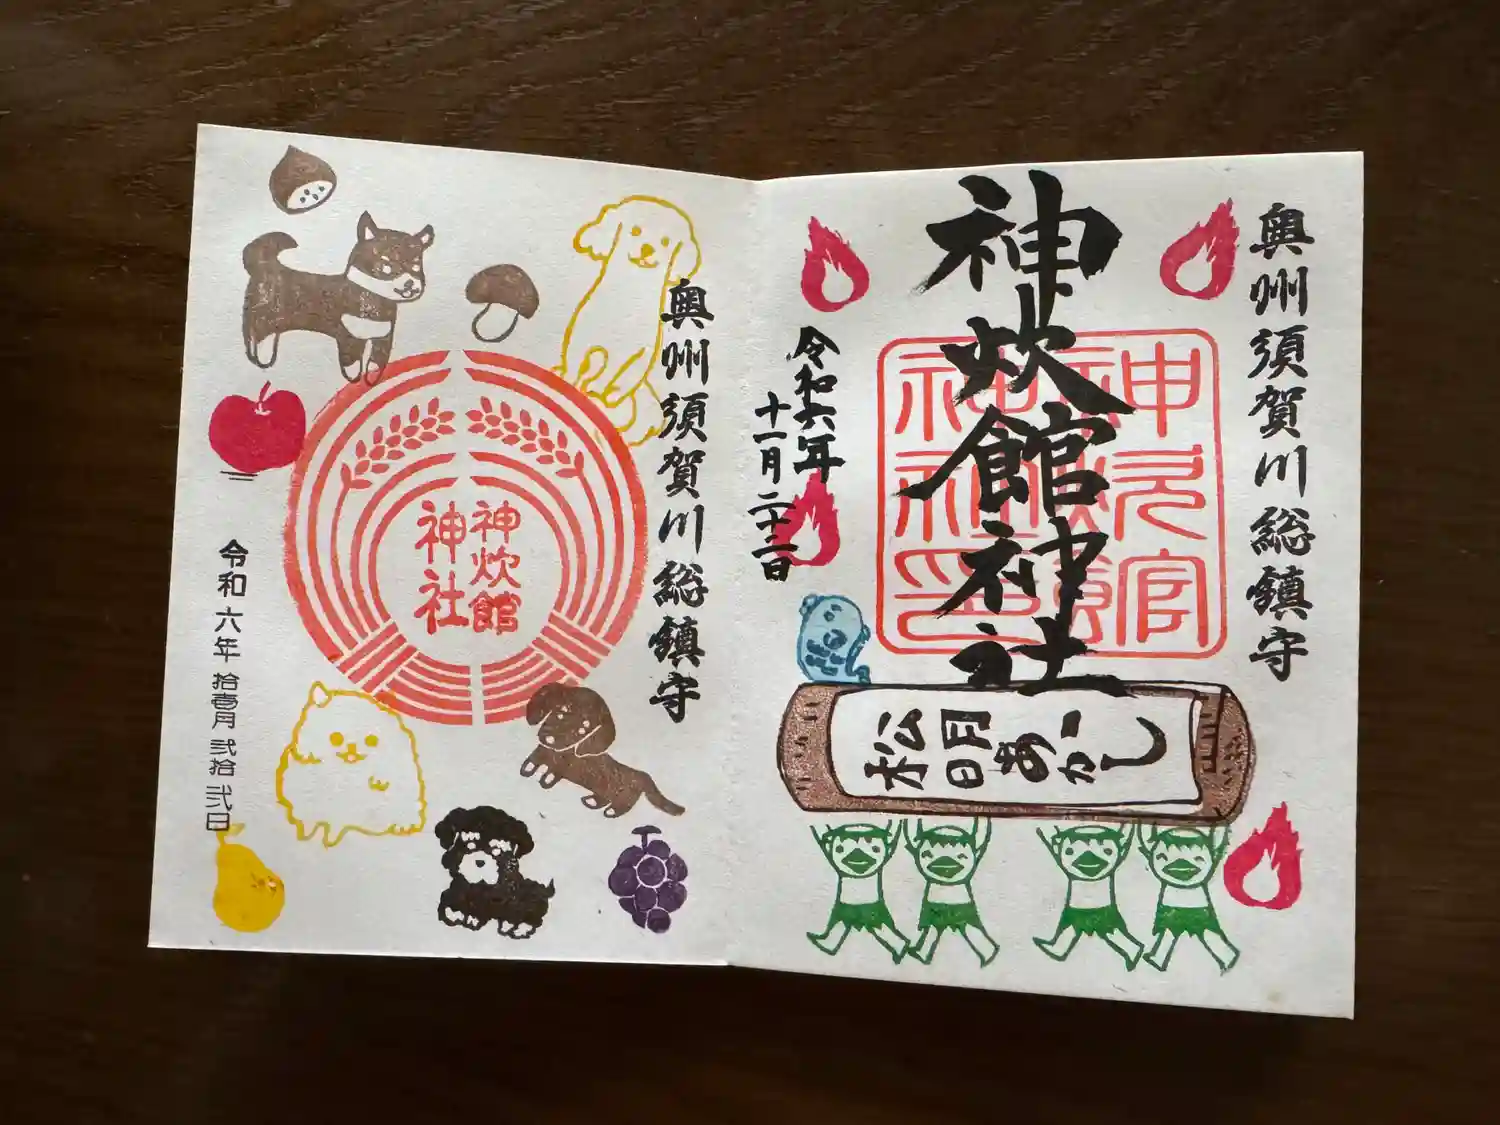 奥州須賀川総鎮守
神炊館神社
令和六年
十一月二十二日
松明あかし
奥州須賀川総鎮守
神炊館
神社
令和六年拾壹月弐拾弐日